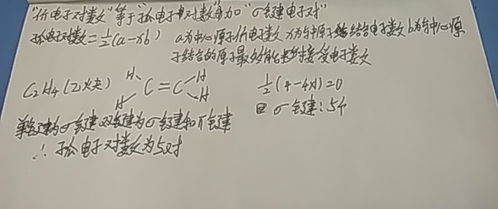 "价电子对数"等于"孤电子对数"加"σ键电子对"
孤电子对数=½(a-xb) a为中心原子价电子数 x为与中原子结合电子数 b为与中心原
子结合的原子最多能接受电子数
C₂H₄(乙炔) H H C=C H H ½(4-4×1)=0
σ键:5个
单键为σ键 双键为σ键和π键
∴孤电子对数为5对